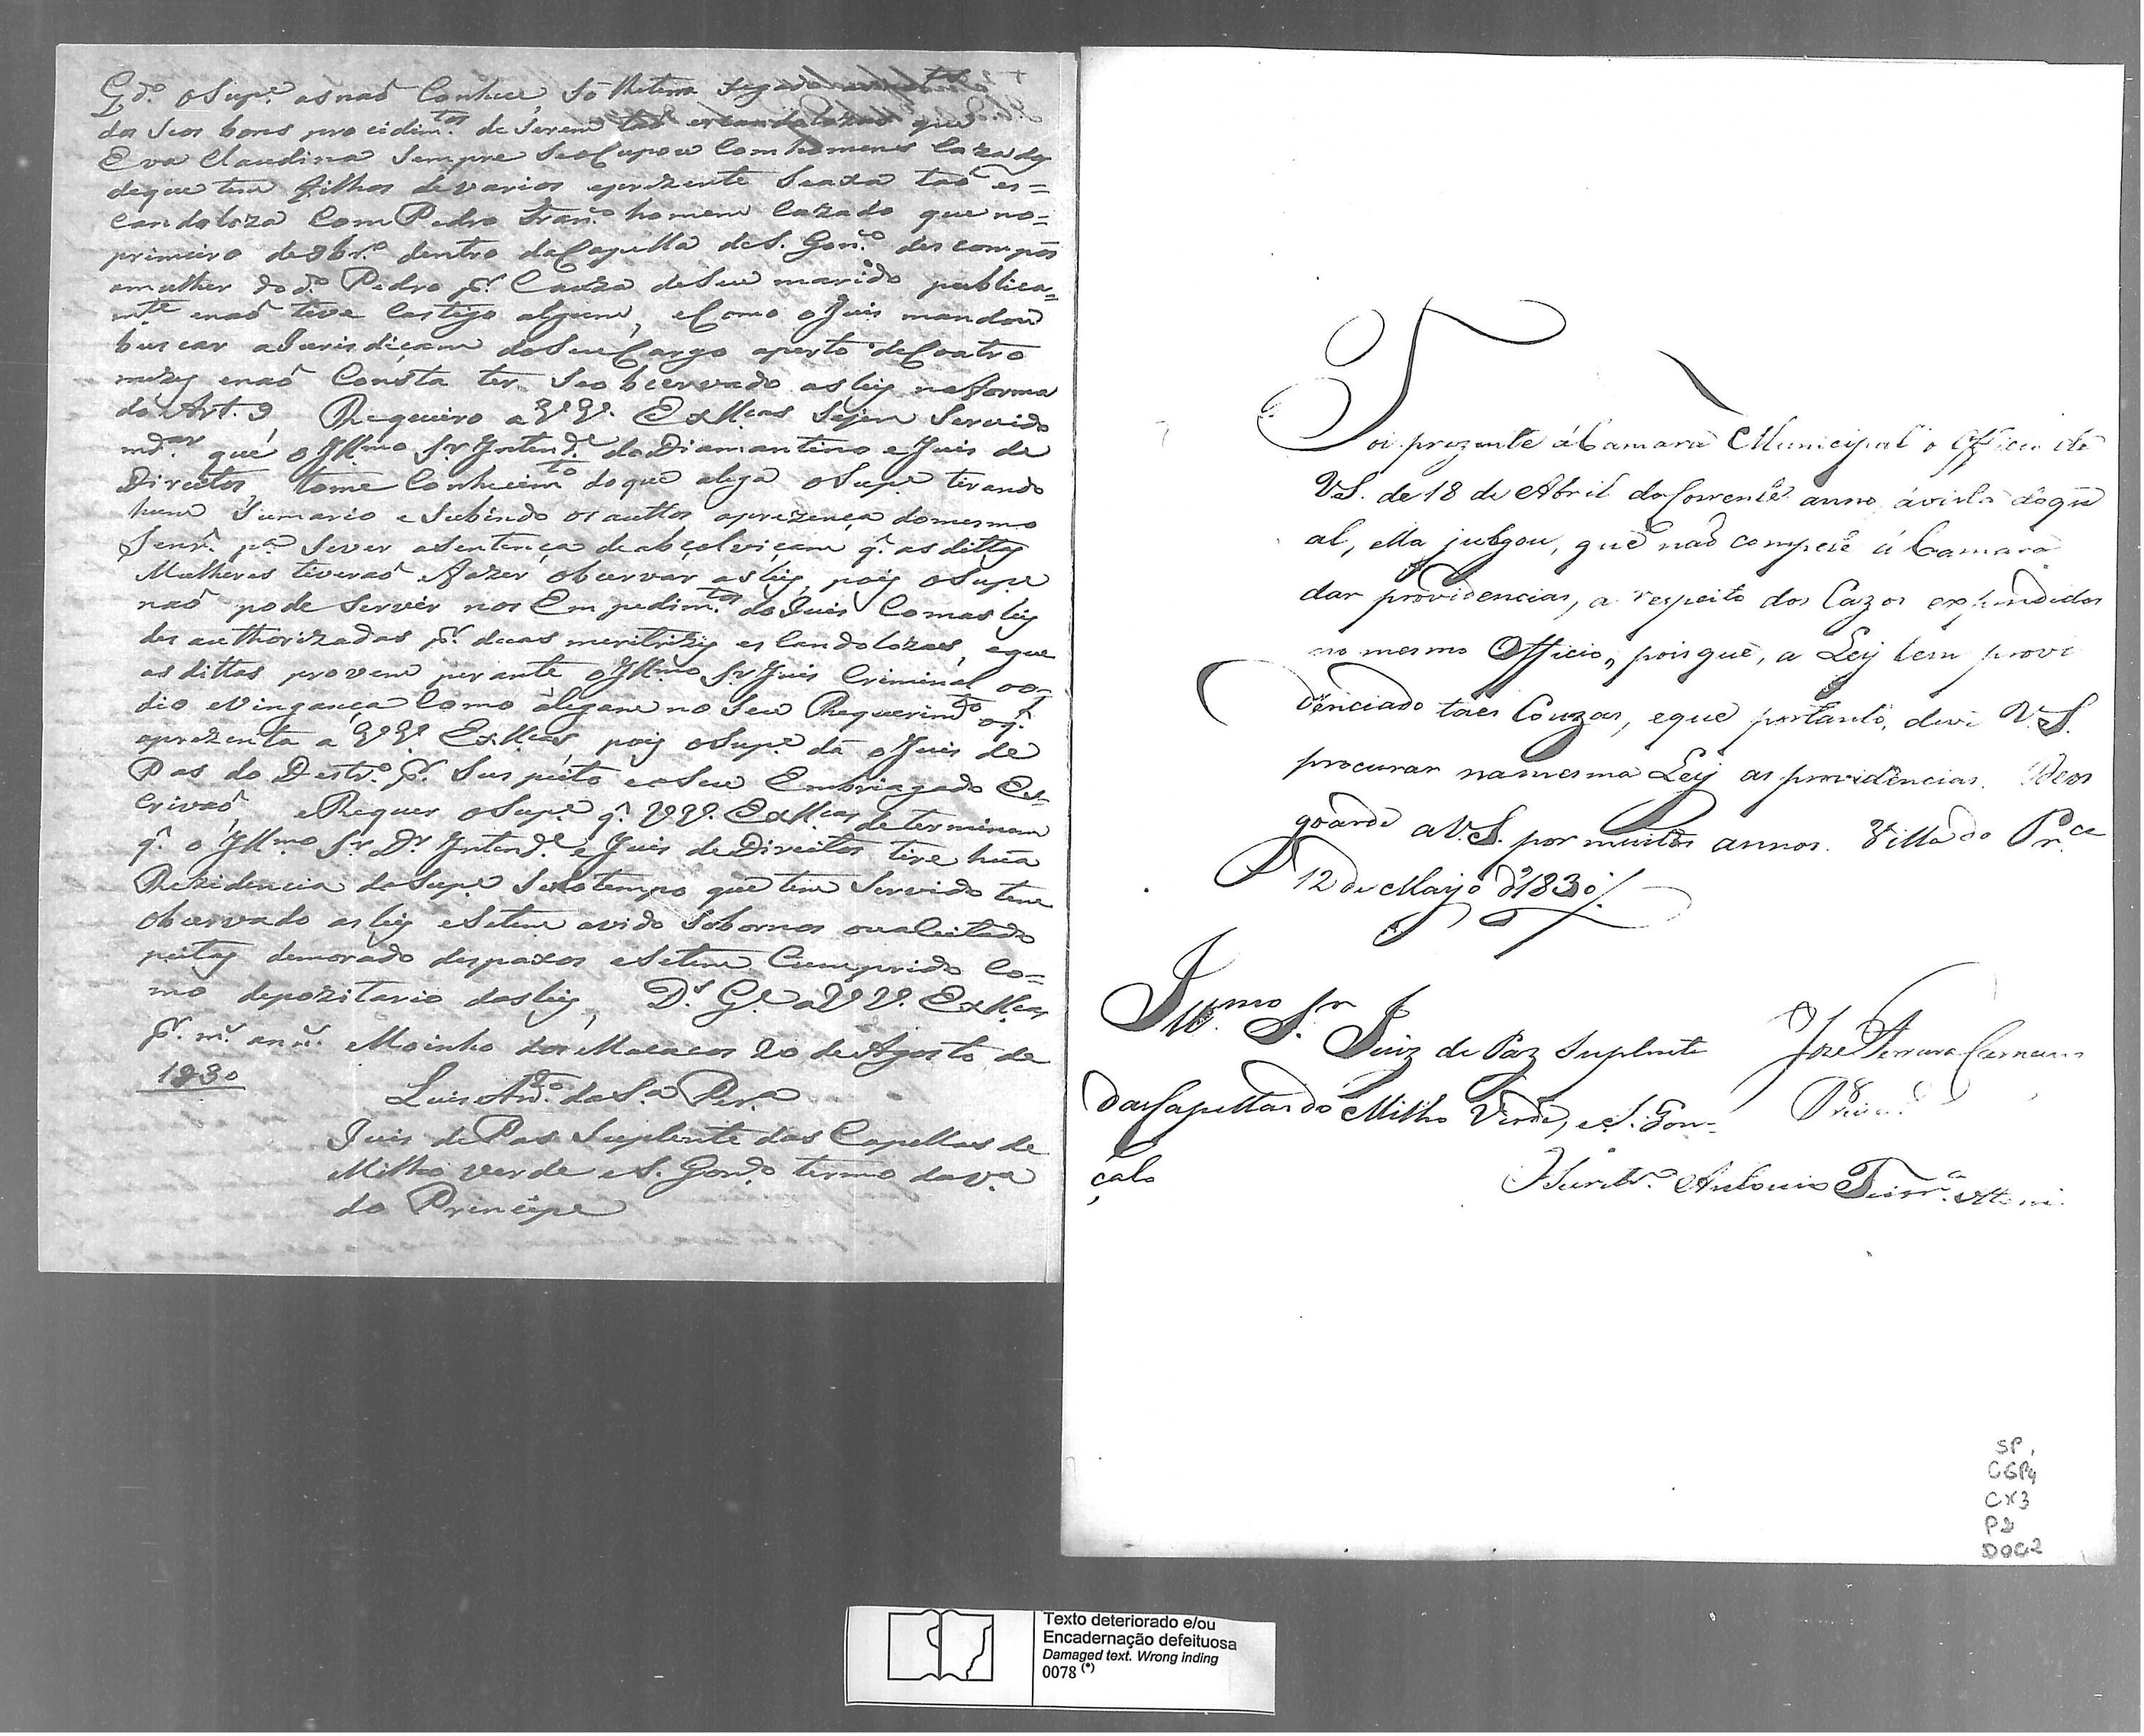 Gd.º o Sup.e as naõ Conhece, Só thetem
dos Seos bons procidim.tos de Serem taõ que
Eva Claudina Sempre Seocupou Com homens Cazados
deque tem filhos de varios eprezente Seaxa taõ es=
candoloza Com Pedro Fran.co homem Cazado que no=
primeiro de 8br.º dentro daCapella de S. Gon.co descompos
amulher do d.º Pedro p.r Cauza deSeu marido publica=
m.te enaõ teve Castigo algum, eComo o Juis mandou
buscar aJurisdiçam doSeu Cargo aperto deCoatro
mezes enaõ Consta ter Seobcervado asleys naforma
do Art. 9, Requeiro a VV. Ex.cas Sejem Servido
md.ar que o Ill.mo Sr. Intend.e do Diamantino e Juis de
Direitos, tome Conhecim.to doque alega o Sup.e tirando
hum Sumario e Subindo os auttos aprezença domesmo
Senr. p.a Sever aSentença deabçolviçam q. as dittas
Mulheres tiveraõ eFazer obcervar asleys, pois oSup.e
naõ pode Servir nos Empedim.tos do Juis Comasleys
desauthorizadas p.r duas meritrizes escandolozas, eque
as dittas provem perante o Ill.mo Sr. Juis Criminal oo=
dio eVingança Como alegam no Seu Requerim.to oq.
aprezenta a VV. Ex.cas, pois oSup.e dá o Juis de
Pas do Destr.º p.r Suspeito eoSeu Embriagado Es=
crivaõ, eRequer oSup.e q. VV. Ex.cas determinem
q. o Ill.mo Sr. Dr. Intend.e e Juis de Direitos tire hũa
Rezidencia doSup.e Senotempo que tem Servido tem
Obcervado asleys eSetem avido Sobornos ouaceitado
peitas demorado despaxos eSetem Cumprido Co=
mo depozitario dasleys, D.s G.e a VV. Ex.cas
p.r m.s an.s Moinho dos Macacos 20 de Agosto de
1830
Luis Ant.º da S.a Per.a
Juis de Pas Suplente das Capellas de
Milho verde e S. Gon.co termo da V.a
do Princepe
Foi prezente á Camara Municipal o Officio de
V.S. de 18 de Abril do Corrente anno, ávista doqu
al, ella julgou, que naõ compete á Camara
dar providencias, a respeito dos Cazos expendidos
no mesmo Officio, porque, a Ley tem provi
denciado taes Couzas, eque portanto, deve V.S.
procurar namesma Ley as providencias. Deos
goarde a V.S. por muitos annos. Villa do Pr.ce
12 de Mayo d'1830
Ill.mo Sr. Juiz de Paz Suplente
dasCapellas do Milho Verde, e S. Gon=
çalo
Joze Ferreira Carneiro
Prezid.e
Antonio
SP,
CGP4
CX3
P2
DOC2
Texto deteriorado e/ou
Encadernação defeituosa
Damaged text. Wrong inding
0078 (*)